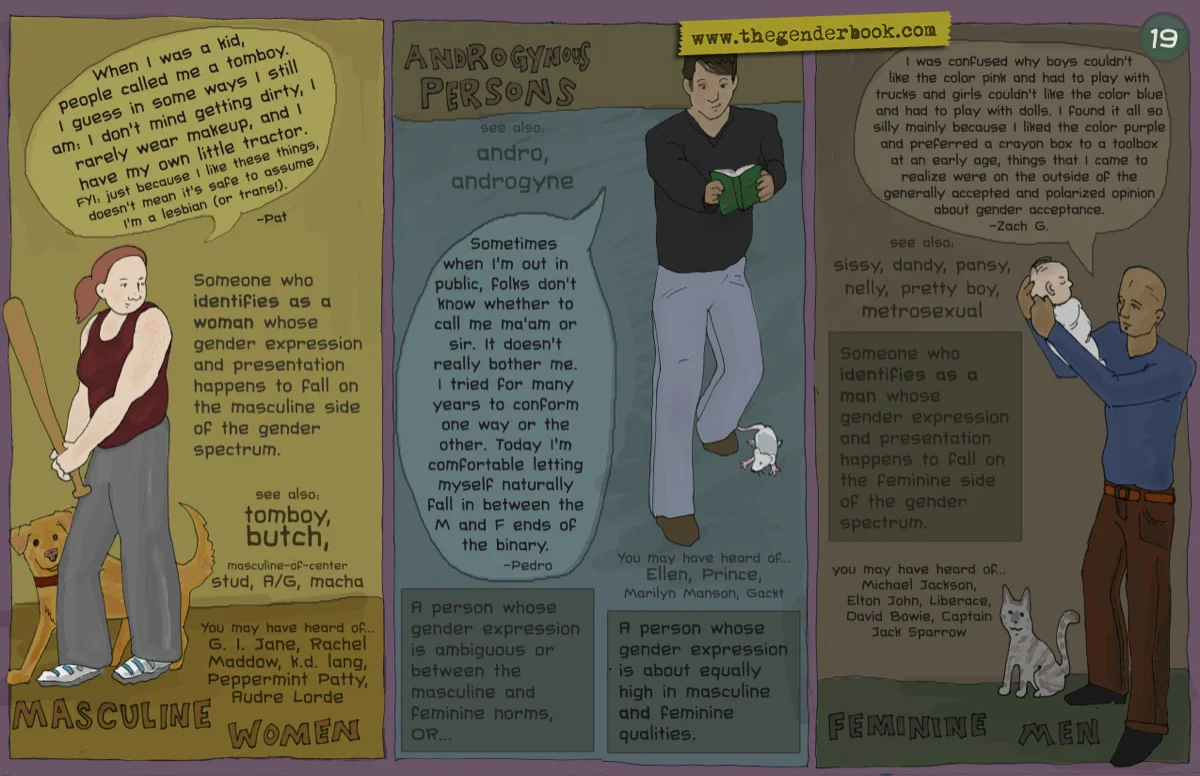 www.thegenderbook.com
19
When I was a kid,
people called me a tomboy.
I guess in some ways I still
am: I don't mind getting dirty, I
rarely wear makeup, and I
have my own little tractor.
FYI: just because I like these things,
doesn't mean it's safe to assume
I'm a lesbian (or trans!).
-Pat
Someone who
identifies as a
woman whose
gender expression
and presentation
happens to fall on
the masculine side
of the gender
spectrum.
see also:
tomboy,
butch,
masculine-of-center
stud, A/G, macha
You may have heard of...
G. I. Jane, Rachel
Maddow, k.d. lang,
Peppermint Patty,
Audre Lorde
MASCULINE
WOMEN
ANDROGYNOUS
PERSONS
see also:
andro,
androgyne
Sometimes
when I'm out in
public, folks don't
know whether to
call me ma'am or
sir. It doesn't
really bother me.
I tried for many
years to conform
one way or the
other. Today I'm
comfortable letting
myself naturally
fall in between the
M and F ends of
the binary.
-Pedro
You may have heard of...
Ellen, Prince,
Marilyn Manson, Gackt
A person whose
gender expression
is ambiguous or
between the
masculine and
feminine norms,
OR...
A person whose
gender expression
is about equally
high in masculine
and feminine
qualities.
I was confused why boys couldn't
like the color pink and had to play with
trucks and girls couldn't like the color blue
and had to play with dolls. I found it all so
silly mainly because I liked the color purple
and preferred a crayon box to a toolbox
at an early age, things that I came to
realize were on the outside of the
generally accepted and polarized opinion
about gender acceptance.
-Zach G.
see also:
sissy, dandy, pansy,
nelly, pretty boy,
metrosexual
Someone who
identifies as a
man whose
gender expression
and presentation
happens to fall on
the feminine side
of the gender
spectrum.
you may have heard of...
Michael Jackson,
Elton John, Liberace,
David Bowie, Captain
Jack Sparrow
FEMININE MEN